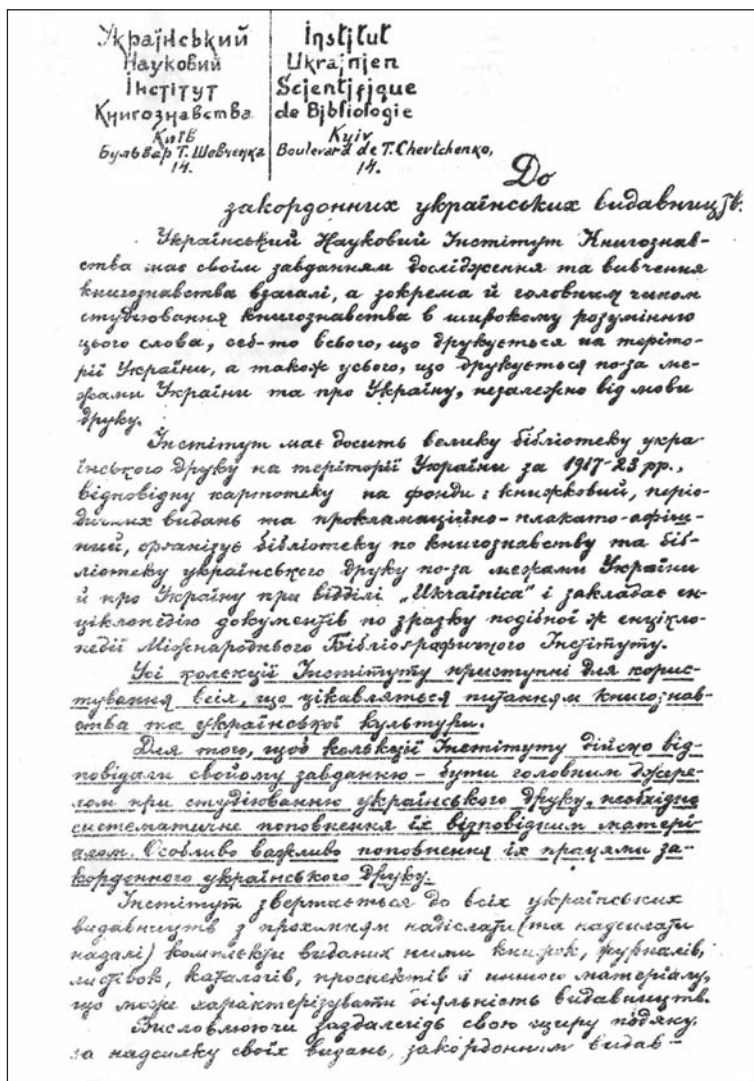 Український
Науковий
Інститут
Книгознавства
Київ
Бульвар Т. Шовченка
14.
Institut
Ukrainien
Scientifique
de Bibliologie
Kyiv
Boulevard de T. Chevtchenko,
14.
До
закордонних українських видавництв.
Український Науковий Інститут Книгознав-
ства має своїм завданням дослідження та вивчення
книгознавства взагалі, а зокрема й головним чином
студіювання книгознавства в широкому розумінню
цього слова, себ-то всього, що друкується на терито-
рії України, а також усього, що друкується по-за ме-
жами України та про Україну, незалежно від мови
друку.
Інститут має досить велику бібліотеку укра-
їнського друку на території України за 1917-23 рр.,
відповідну картотеку на фонди: книжковий, періо-
дичних видань та прокламаційно-плакато-афіш-
ний, організує бібліотеку по книгознавству та біб-
ліотеку українського друку по-за межами України
й про Україну при відділі „Ukrainica" і закладає ен-
циклопедію документів по зразку подібної ж енцікло-
педії Міжнароднього Бібліографичного Інституту.
Усі колекції Інституту приступні для корис-
тування всім, що цікавляться питанням книгознав-
ства та української культури.
Для того, щоб колекції Інституту дійсно від-
повідали свойому завданню - бути головним джере-
лом при студіюванню українського друку, необхідно
систематичне поповнення їх відповідним матері-
алом. Особливо важливо поповнення їх працями за-
кордонного українського друку.
Інститут звертається до всіх українських
видавництв з проханням надіслати (та надсилати
надалі) комплекти виданих ними книжок, журналів,
листівок, каталогів, проспектів і иншого матеріалу,
що може характерізувати діяльність видавництв.
Висловлюючи заздалегідь свою щиру подяку
за надсилку своїх видань, закордонним видав-